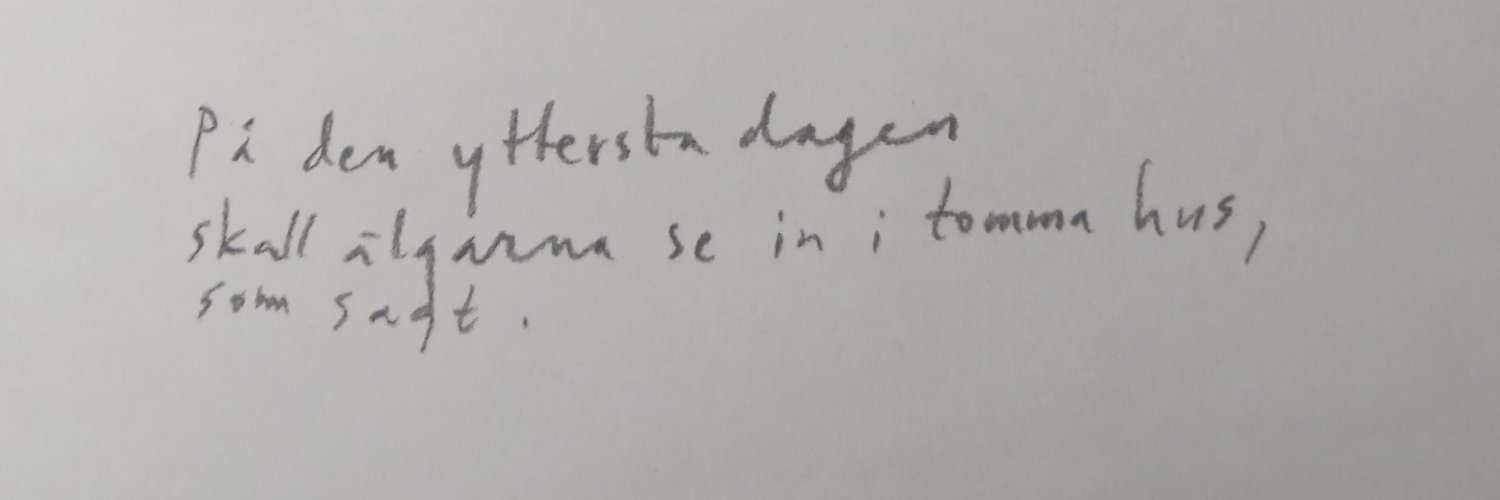 På den yttersta dagen
skall älgarna se in i tomma hus,
som sagt.